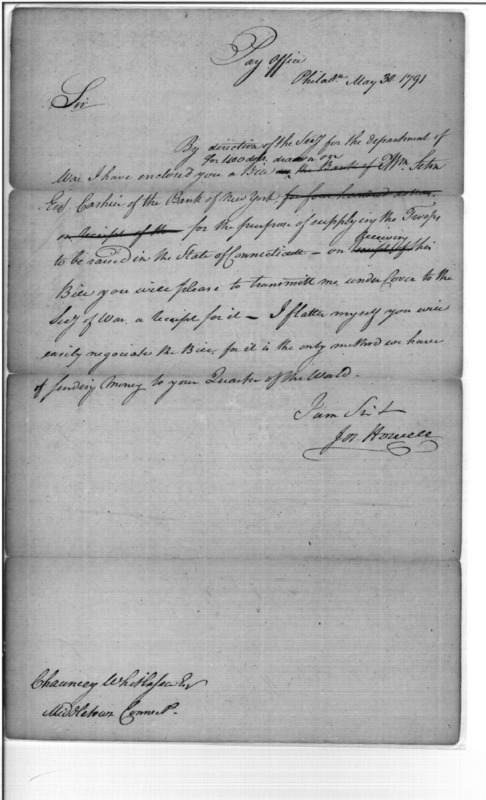 Pay Office
Philada May 30 1791
Sir
By direction of the Secy for the department of
for 400 dolls drawn on
War I have enclosed you a Bill on the Bank of Wm Seton
Esq Cashier of the Bank of New York, for four hundred dollars
on receipt of th for the purpose of supplying the Troops
receiving
to be raised in the State of Connecticutt - on receipt of this
Bill you will please to transmitt me under Cover to the
Secy of War a Receipt for it - I flatter myself you will
easily negociate the Bill, for it is the only method we have
of sending Money to your Quarter of the World.
I am Sir &
Jos Howell
Chauncey Whittlesey Esq
Middletown Connect.